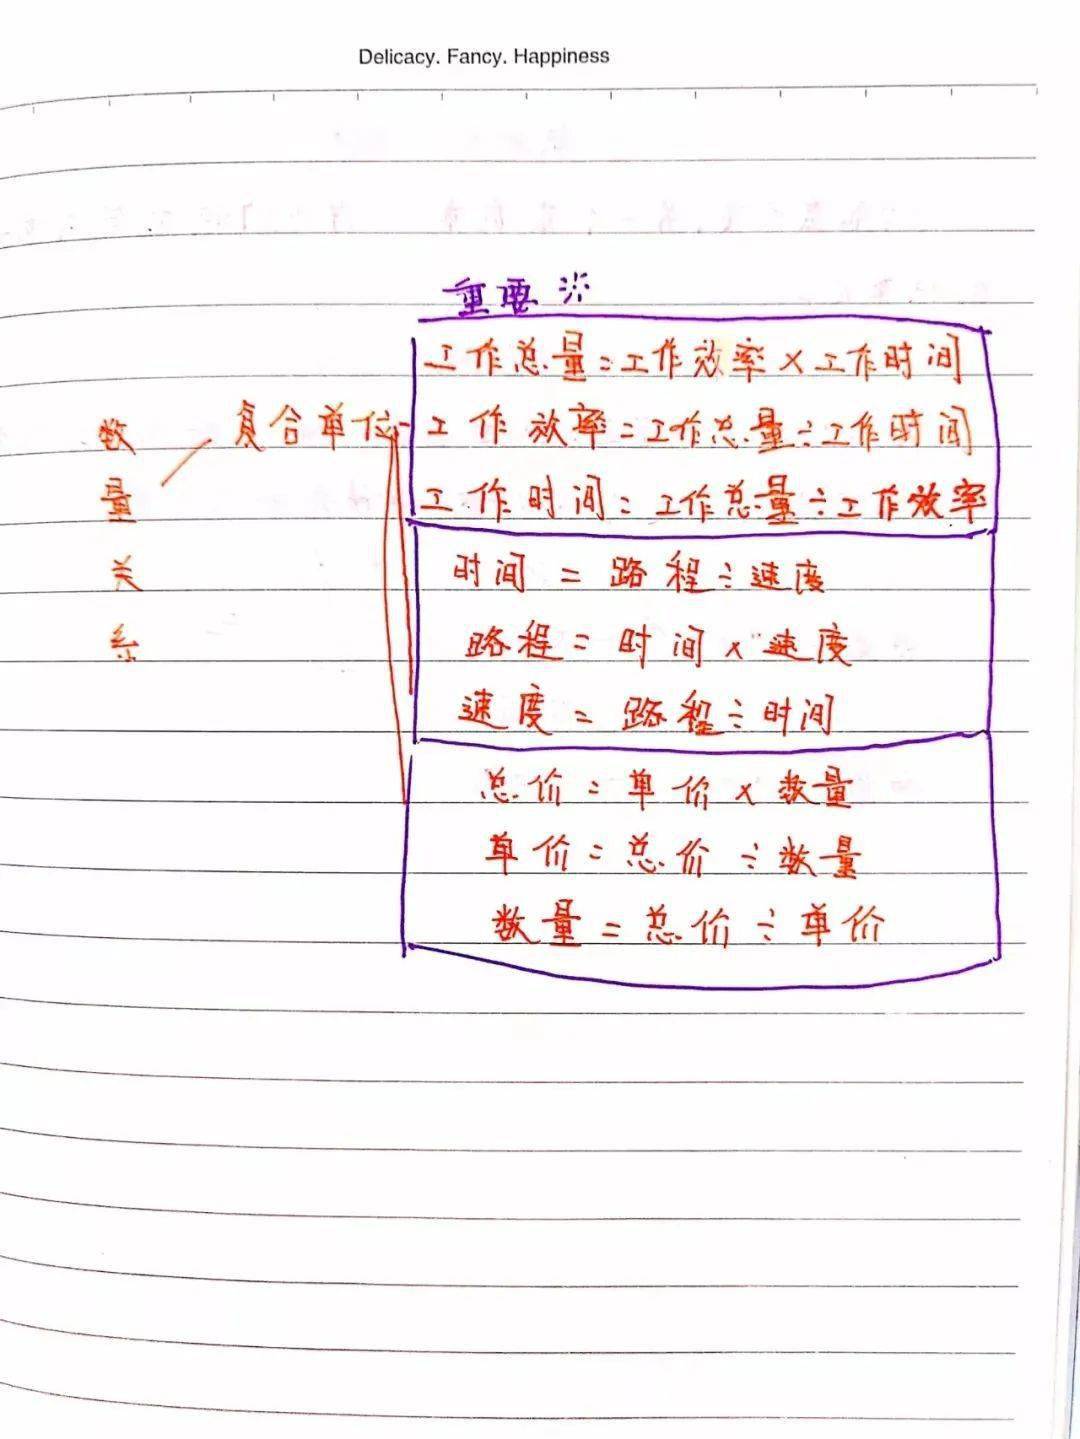 Delicacy. Fancy. Happiness
重要※
工作总量=工作效率×工作时间
数量关系
复合单位
工作效率=工作总量÷工作时间
工作时间=工作总量÷工作效率
时间=路程÷速度
路程=时间×速度
速度=路程÷时间
总价=单价×数量
单价=总价÷数量
数量=总价÷单价